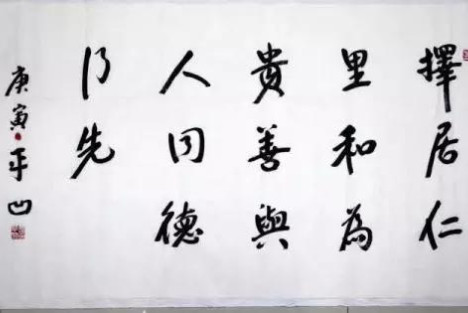 擇居仁
里和為
貴善與
人同德
先
庚寅平凹